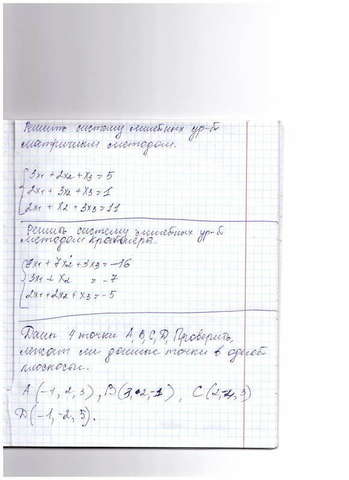 Решить систему линейных ур-й
матричным методом.
3x1 + 2x2 + x3 = 5
2x1 + 3x2 + x3 = 1
2x1 + x2 + 3x3 = 11
Решить систему линейных ур-й
методом Крамера.
x1 + 7x2 + 3x3 = -16
3x1 + x2 = -7
2x1 + 2x2 + x3 = -5
Даны 4 точки A, B, C, D. Проверить,
лежат ли данные точки в одной
плоскости.
A(-1, 2, 3), B(3, 2, -1), C(2, 3)
D(-1, -2, 3).